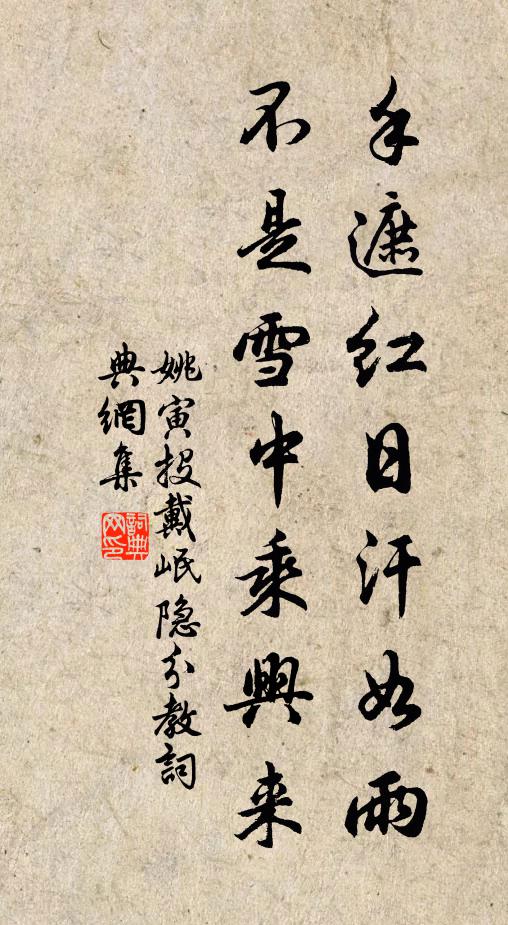 手遮红日汗如雨
不是雪中乘興来
姚寅投戴岷隐分教詞
典網集
詞典網印